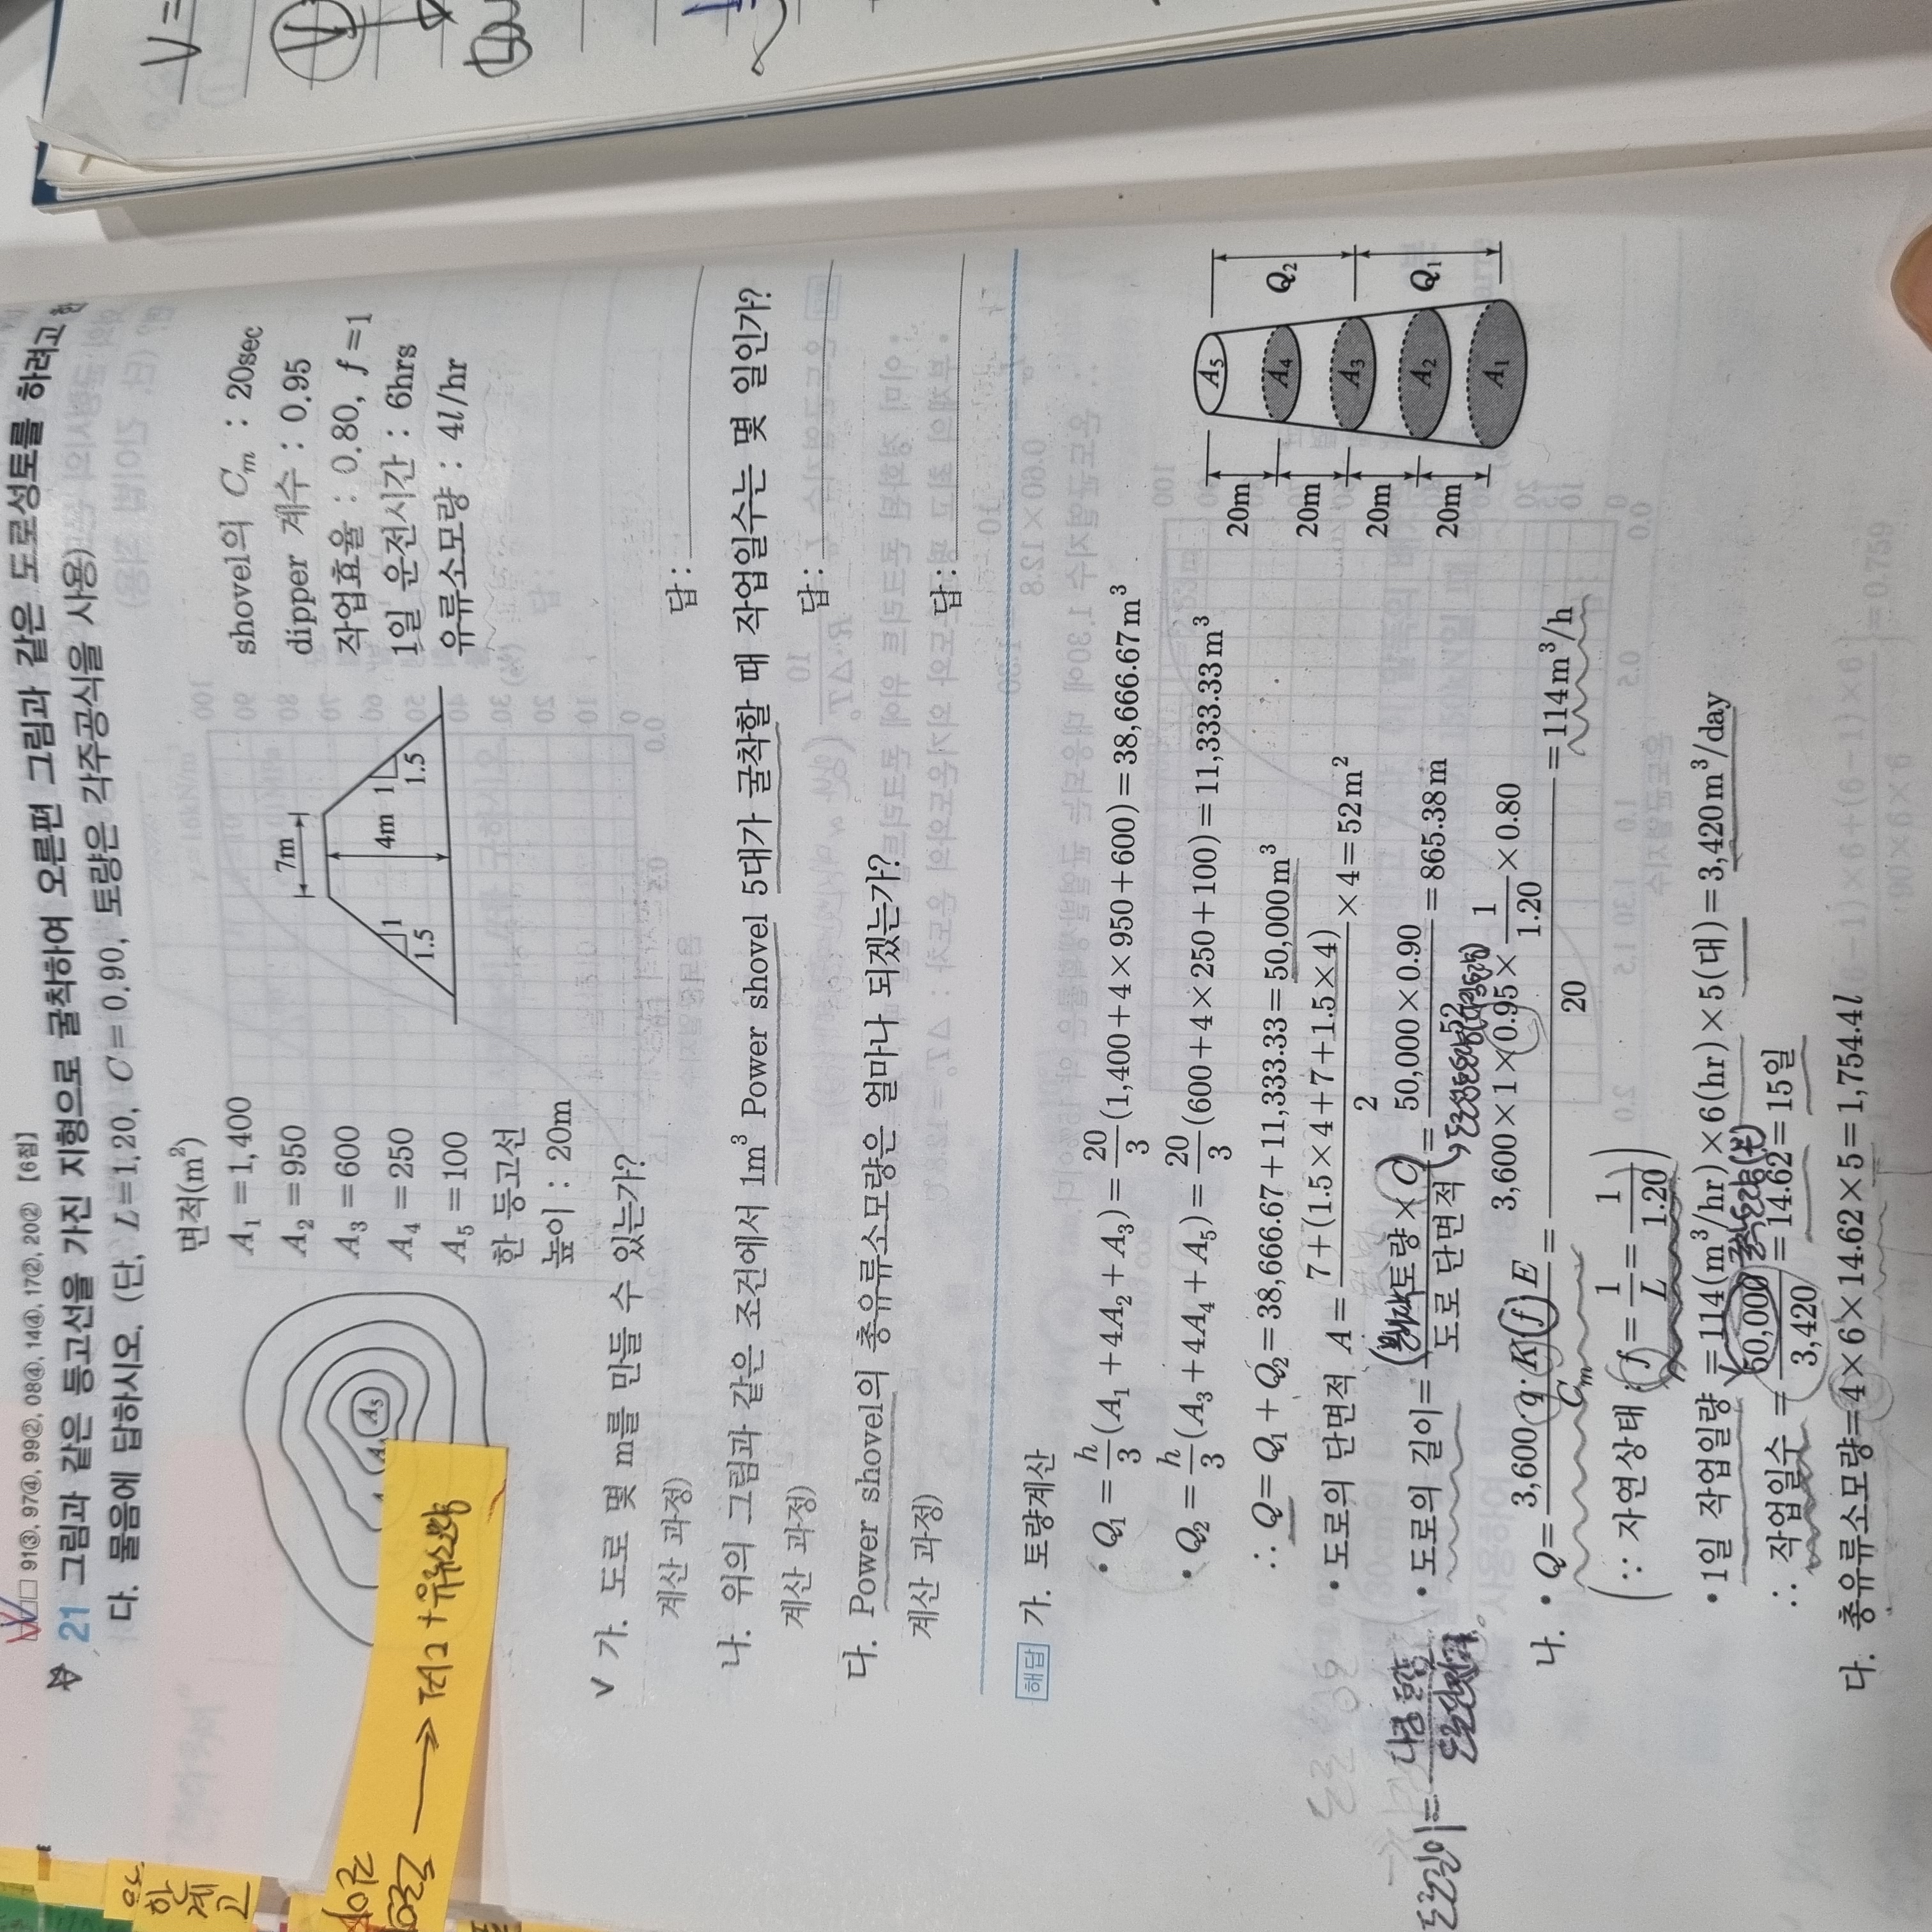 91③, 97④, 99②, 08④, 14④, 17②, 20② [6점]
21 그림과 같은 등고선을 가진 지형으로 굴착하여 오른편 그림과 같은 도로성토를 하려고 한
다. 물음에 답하시오. (단, L=1.20, C=0.90, 토량은 각주공식을 사용)
면적(m²)
A₁=1,400
A₂=950
A₃=600
A₄=250
A₅=100
한 등고선
높이 : 20m
A₅
7m
4m
1
1.5
1
1.5
shovel의 Cₘ : 20sec
dipper 계수 : 0.95
작업효율 : 0.80, f=1
1일 운전시간 : 6hrs
유류소모량 : 4l/hr
V 가. 도로 몇 m를 만들 수 있는가?
계산 과정)
답 :
나. 위의 그림과 같은 조건에서 1m³ Power shovel 5대가 굴착할 때 작업일수는 몇 일인가?
계산 과정)
답 :
다. Power shovel의 총유류소모량은 얼마나 되겠는가?
계산 과정)
답 :
해답 가. 토량계산
• Q₁ = h/3 (A₁+4A₂+A₃) = 20/3 (1,400+4×950+600) = 38,666.67m³
• Q₂ = h/3 (A₃+4A₄+A₅) = 20/3 (600+4×250+100) = 11,333.33m³
∴ Q = Q₁+Q₂ = 38,666.67+11,333.33 = 50,000m³
• 도로의 단면적 A = 7+(1.5×4+7+1.5×4)/2 ×4 = 52m²
• 도로의 길이 = 토량×C/도로 단면적 = 50,000×0.90/52 = 865.38m
나. • Q = 3,600·q·K·f·E/Cₘ = 3,600×1×0.95×1/1.20×0.80/20 = 114m³/h
(∵ 자연상태 : f = 1/L = 1/1.20)
• 1일 작업일량 = 114(m³/hr)×6(hr)×5(대) = 3,420m³/day
∴ 작업일수 = 50,000/3,420 = 14.62 = 15일
다. 총유류소모량 = 4×6×14.62×5 = 1,754.4l
A₅
A₄
A₃
A₂
A₁
20m
20m
20m
20m
Q₂
Q₁